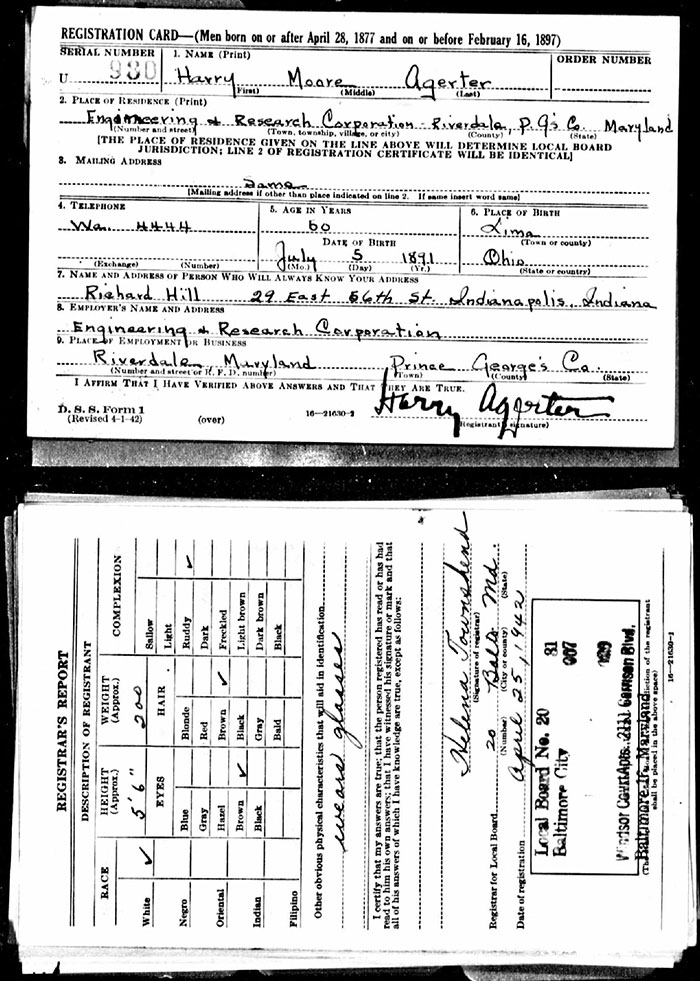 REGISTRATION CARD—(Men born on or after April 28, 1877 and on or before February 16, 1897)
SERIAL NUMBER 1. NAME (Print) ORDER NUMBER
U 930 Harry Moore Agerter
(First) (Middle) (Last)
2. PLACE OF RESIDENCE (Print)
Engineering & Research Corporation - Riverdale, P. G's Co. Maryland
(Number and street) (Town, township, village, or city) (County) (State)
[THE PLACE OF RESIDENCE GIVEN ON THE LINE ABOVE WILL DETERMINE LOCAL BOARD
JURISDICTION; LINE 2 OF REGISTRATION CERTIFICATE WILL BE IDENTICAL]
3. MAILING ADDRESS
Same
[Mailing address if other than place indicated on line 2. If same insert word same]
4. TELEPHONE 5. AGE IN YEARS 6. PLACE OF BIRTH
Wa. 4444 50 Lima
(Town or county)
DATE OF BIRTH
July 5 1891 Ohio
(Exchange) (Number) (Mo.) (Day) (Yr.) (State or country)
7. NAME AND ADDRESS OF PERSON WHO WILL ALWAYS KNOW YOUR ADDRESS
Richard Hill 29 East 56th St. Indianapolis, Indiana
8. EMPLOYER'S NAME AND ADDRESS
Engineering & Research Corporation
9. PLACE OF EMPLOYMENT OR BUSINESS
Riverdale, Maryland Prince George's Co.
(Number and street or R. F. D. number) (Town) (County) (State)
I AFFIRM THAT I HAVE VERIFIED ABOVE ANSWERS AND THAT THEY ARE TRUE.
Harry Agerter
D. S. S. Form 1
(Revised 4-1-42) (over) 16—21630-2 (Registrant's signature)
REGISTRAR'S REPORT
DESCRIPTION OF REGISTRANT
RACE HEIGHT (Approx.) WEIGHT (Approx.) COMPLEXION
White ✓ 5' 6" 200 Sallow
EYES HAIR Light
Negro Blue Blonde Ruddy ✓
Gray Red Dark
Oriental Hazel Brown ✓ Freckled
Brown ✓ Black Light brown
Indian Black Gray Dark brown
Bald Black
Filipino
Other obvious physical characteristics that will aid in identification
wears glasses
I certify that my answers are true; that the person registered has read or has had
read to him his own answers; that I have witnessed his signature or mark and that
all of his answers of which I have knowledge are true, except as follows:
Helena Townshend
(Signature of registrar)
Registrar for Local Board 20 Balto. Md.
(Number) (City or county) (State)
Date of registration April 25, 1942
Local Board No. 20 81
Baltimore City 007
029
Windsor Court Apts. 2111 Garrison Blvd.
Baltimore 16, Maryland
of the registrant
shall be placed in the above space)
16—21630-1